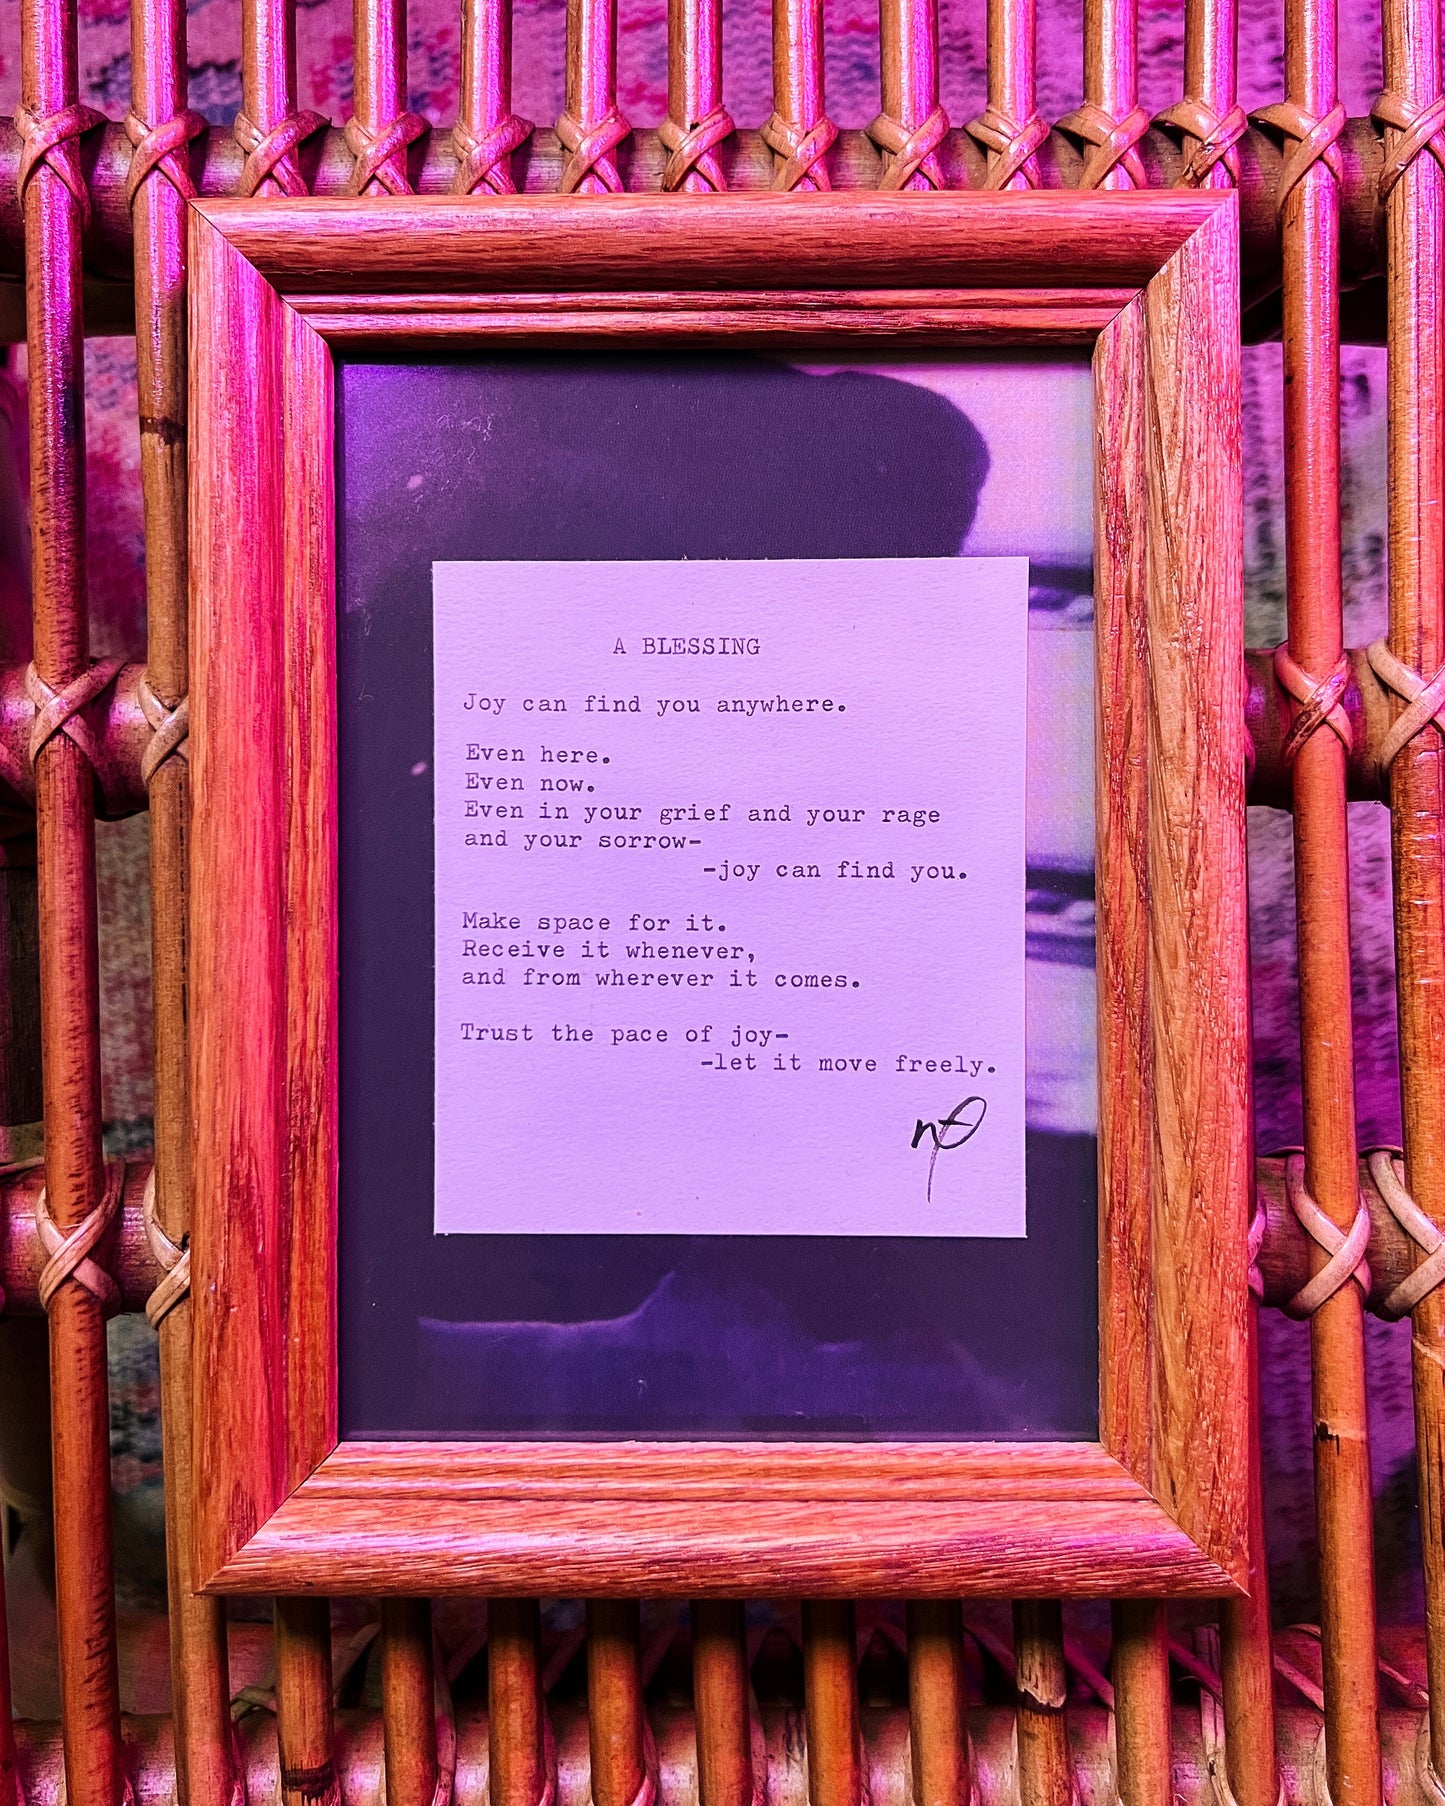 A BLESSING
Joy can find you anywhere.
Even here.
Even now.
Even in your grief and your rage
and your sorrow-
-joy can find you.
Make space for it.
Receive it whenever,
and from wherever it comes.
Trust the pace of joy-
-let it move freely.